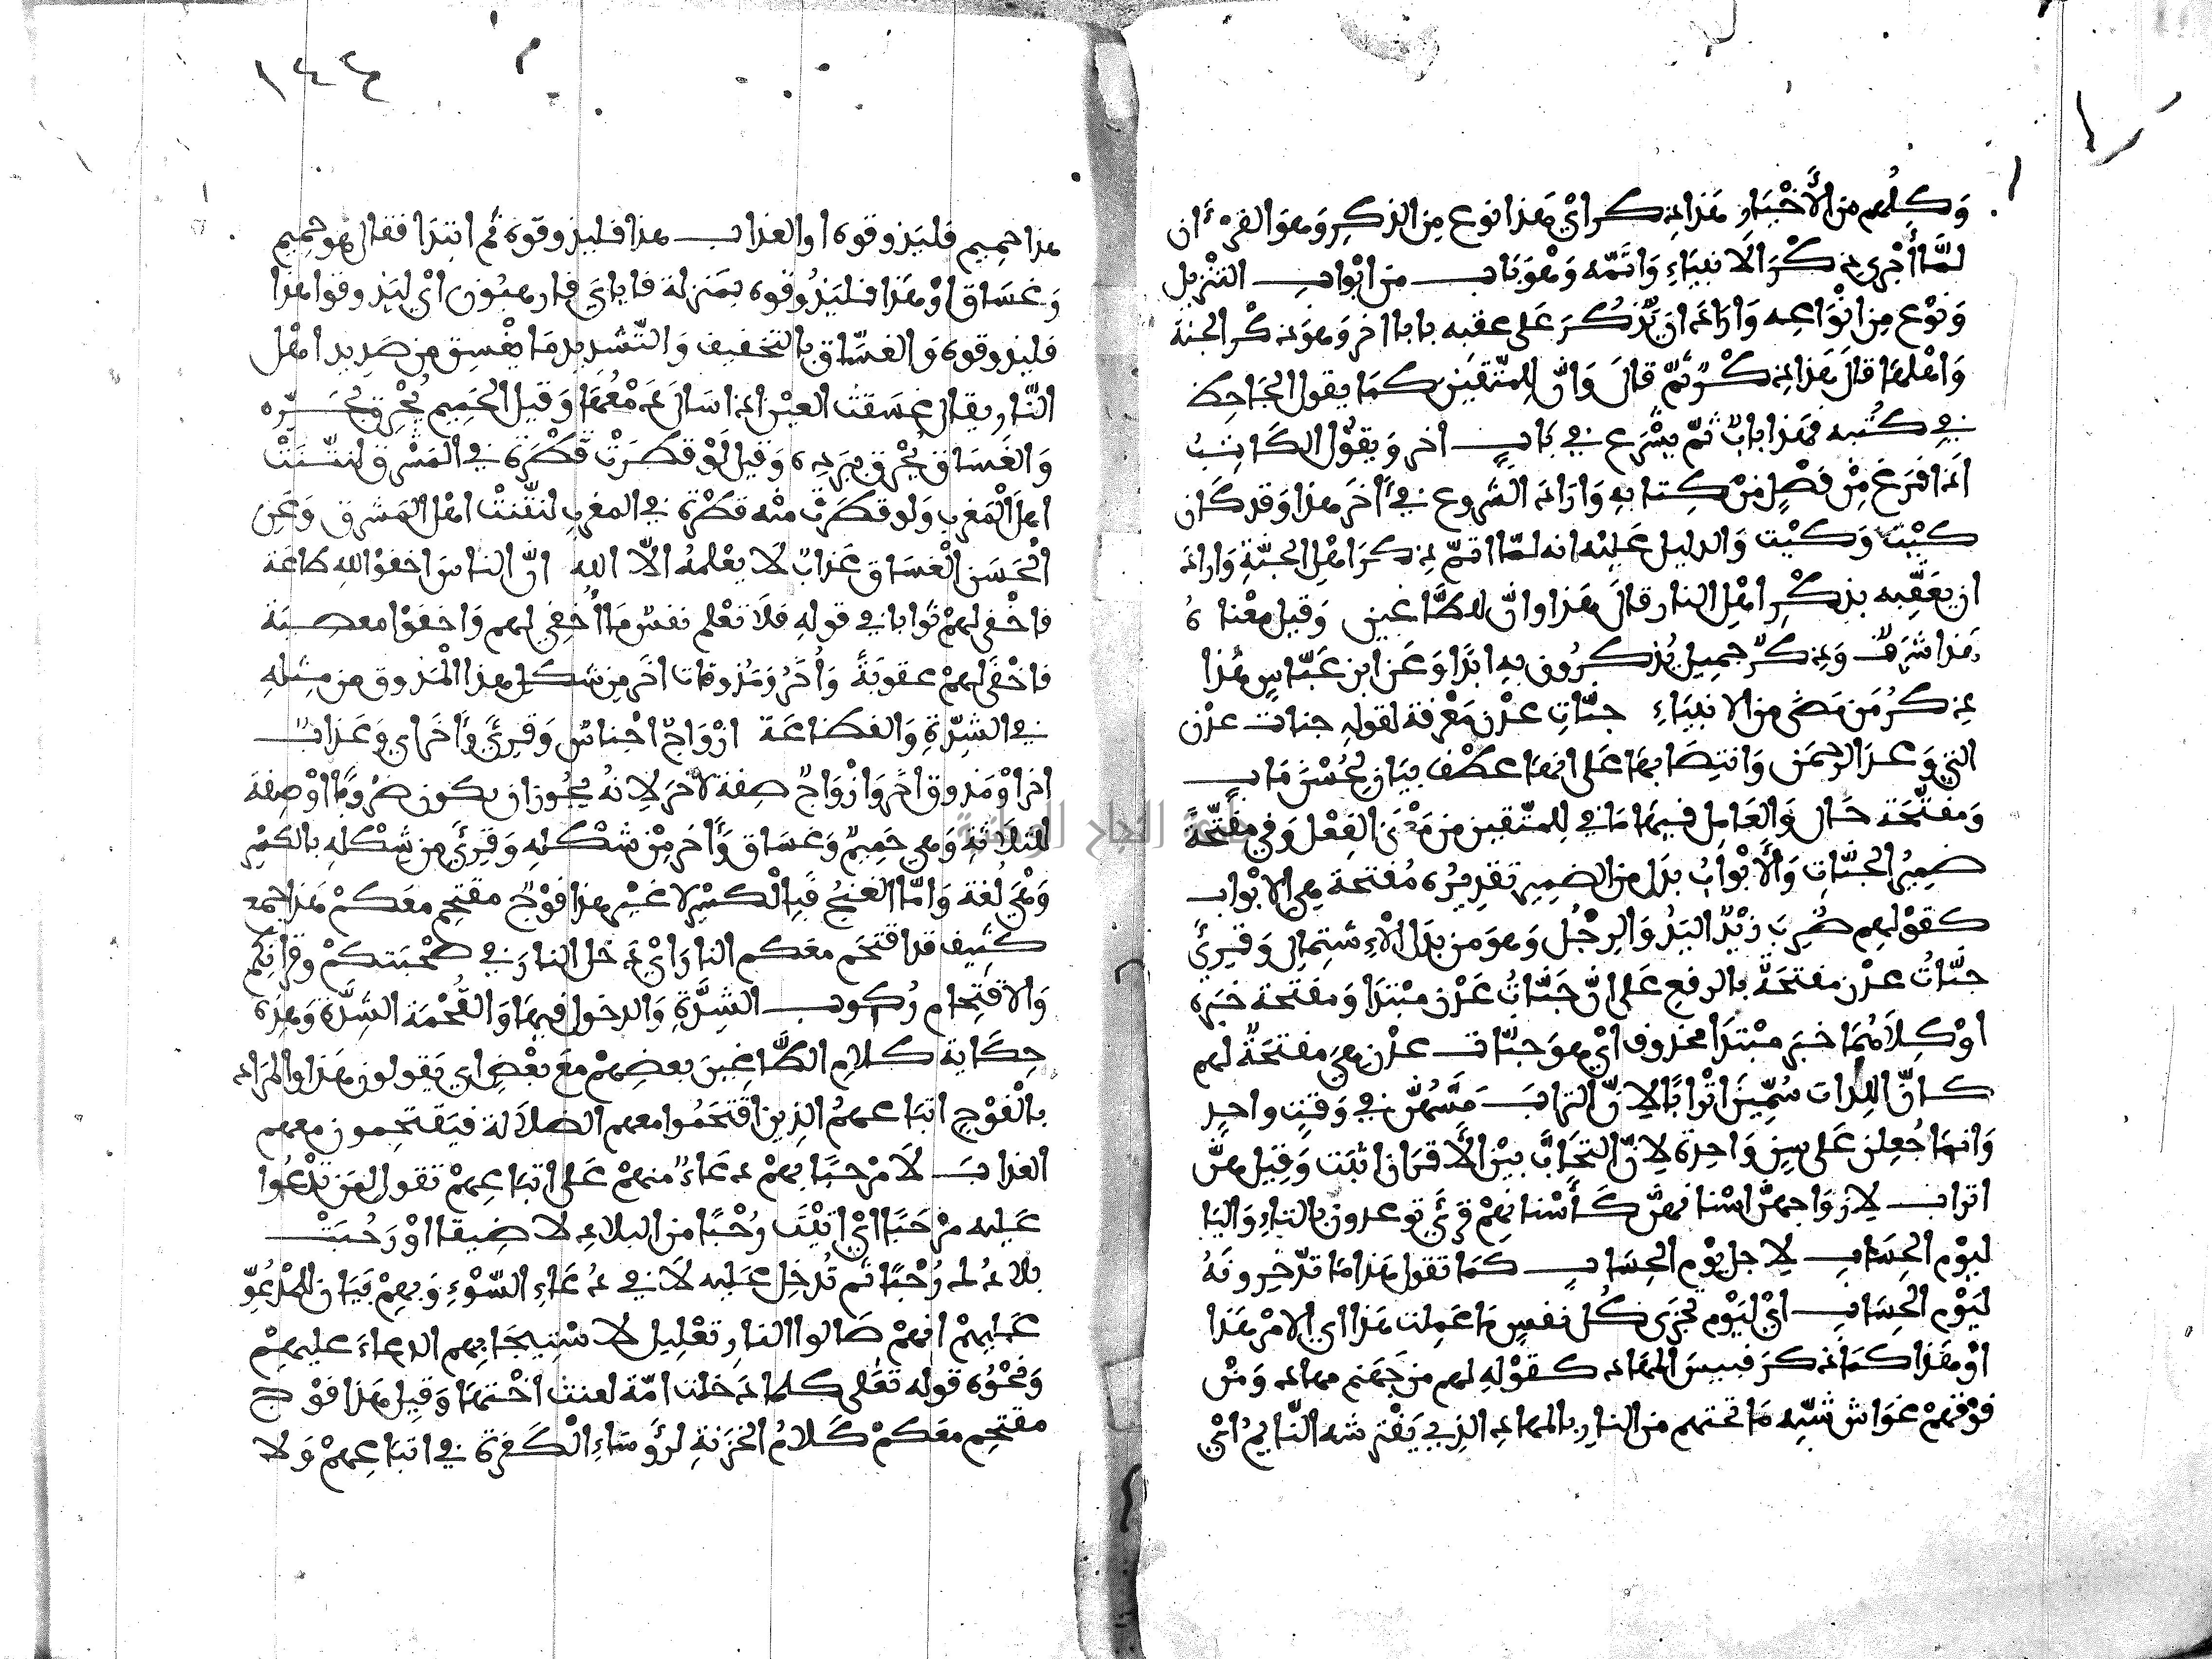 وَكلهم من الأَخْيَارِ هَذا ذكر اي هَذا نوع مِن الذكِر وَهوَ القرءَان
لمَّا أجْرى ذكْرَ الانبيَاءِ وَاتَمّه وَهْوَ بَاب من ابْواب التنْزيل
وَنوْع مِن انْوَاعِه وَارَادَ ان يّذكُرَ عَلى عقبه بابا اخر وَهوَ ذكْر الجنة
وَاهْلهَا قالَ هَذا ذكْرٌ ثمّ قالَ وَانّ لِلمتّقين كمَا يقول الجَاحِظ
في كتُبه فهَذا بابٌ ثمّ يشْرَع في بَابٍ اخر وَيقوُل الكَاتبُ
اذا فرَغ مِنْ فصْلٍ مِنْ كِتابهِ وَارَادَ الشروع في ءَاخَر هذا وَقد كَان
كيْت وَكيْت وَالدليل عَليْه انه لمّا اتمّ ذكرَ اهْلِ الجنّةِ وَارادَ
ان يعَقّبه بذكْرِ اهْلِ النار قالَ هَذا وانّ للطَّاغين وَقيل معْناهُ
هَذا شرَفٌ وَذكرٌ جميل يُذكرُون بهِ ابدًا وَعَن ابن عَبّاسٍ هَذا
ذكرُ مَن مَضى من الانبيَاءِ جنّاتِ عدْن مَعْرفة لقولهِ جنات عدْن
التي وَعدَ الرحمَن وَانتِصَابهَا عَلى انهَا عطْف بيَان لحُسْنَ مَاب
وَمفتّحَة حَال وَالعَامل فيهَا مَا في لِلمتّقين من مَعْنى الفِعْل وَفي مفتّحَةً
ضميرُ الجنّاتِ وَالأَبْوابُ بدَل من الضمِير تقديرُه مُفتحة هي الابْواب
كقوْلهم ضُرِبَ زيْدٌ اليَدُ وَالرِجْلُ وَهوَ من بدَل الْاِشتِمالِ وَقرِئَ
جنّاتُ عدْن مفتحَةٌ بالرفع عَلى انّ جَنّاتُ عَدْن مبْتدَا وَمفتحة خبَره
اوْ كِلاَهُمَا خبَر مبْتدَا محذوف ايْ هوَ جنّات عدْن هيَ مفتحَةٌ لهم
كانّ اللِدات سُمّينَ اتْرابًا لِانّ الترابَ مَسَّهُنّ في وَقتٍ واحِدٍ
وَانمَا جُعلن عَلى سِنٍ وَاحِدة لِانّ التحَابَّ بيْن الأَقرَان اثبَت وَقيل هنّ
اتراب لِازوَاجهنّ اسْنانهنّ كَأسْنانهِمْ قرِئَ توعدون بالتاءِ وَاليَا
ليوْم الحِسَابِ لِاجل يوْم الحِسَابِ كمَا تقول هَذا مَا تدّخِرونَهُ
ليَوْم الحِسَابِ ايْ ليَوْم تجزَى كُل نفسٍ مَا عَمِلت هَذا اي الامْر هَذا
اوْ هَذا كمَا ذكرَ فبيسَ المهَاد كقوْلهِ لهم من جَهَنم مهاد وَمنْ
فوْقهِمْ غوَاش شبّه مَا تحتهم من النارِ بالمهادِ الذي يَفْترشه النّايمُ ايْ
١٤٤
هذا حميم فليَذوقوه او العَذاب هذا فليذوقوه ثم ابتدَا فقال هوَ حَمِيم
وَغسَاق اوْ هَذا فليَذُوقوه بمَنزلة فايايَ فارهبُون ايْ ليَذوقوا هذا
فليذوقوه وَالغسَّاق بالتخفيف وَالتّشديد مَا يغْسِق من صَديد اهْل
النّار يقال غسَقت العيْن اذا سَال دَمْعُهَا وَقيل الحَمِيم يُحْرق بحَرّه
وَالغسَاق يُحْرق ببَرده وَقيل لَوْ قطرَتْ قطْرَة في المَشْرق لنتّنتْ
اهلَ الْمَغربِ وَلو قطرَتْ منْه قطْرَة في المغربِ لنتّنتْ اهْل المَشرق وَعَن
الْحَسَن الْغسَاق عَذابٌ لَا يعْلمهُ الاّ الله انّ الناسَ اخفوْا لله طاعَة
فاخْفى لهمْ ثوَابا في قولهِ فلَا تعْلم نفسٌ مَا أُخفِيَ لهم وَاخفوْا معصِيَة
فاخْفَى لهمْ عقوبَةً وَأُخَرُ وَمَذوقات اخَر مِن شكلِ هذا المَذوق من مِثلهِ
في الشدّةِ وَالفظاعَة ازْوَاجٌ اجْناسٌ وَقرِئَ وَءَاخَر اي وَعَذاب
اخَر اوْ مَذوق اخَر وَازْوَاجٌ صِفة لاخَر لِانهُ يجُوز ان يكون ضرُوبًا اوْ صِفة
للثلَاثةِ وَهي حَمِيمٌ وَغسَاق وَءَاخر مِنْ شكْلهِ وَقرِئَ مِن شِكْلهِ بالكسْر
وَهْيَ لُغة وَامّا الغنْجُ فَبِالْكسْرِ لا غيْر هذا فوْجٌ مقتحِم معَكمْ هَذا جمع
كثيف قد اقتحَم معَكم النارَ ايْ دَخل النارَ في صحْبَتكمْ وقرَانِكم
وَالاقتِحام رُكوب الشِدَّةِ وَالدخول فيهَا وَالقُحْمَة الشِدَّة وَهذه
حِكَاية كلام الطَّاغينَ بعضِهمْ مَعَ بعْضٍ اي يَقولون هَذا والمَراد
بالْفوْجِ اتبَاعهمُ الذين اقتحَمُوا معهم الضلاَلة فيَقتحِمون معهم
العذابَ لَا مَرْحبًا بِهمْ دعَاءٌ منهمْ عَلى اتبَاعِهمْ تقول لمَن تدْعُوا
عَليه مرْحَبًا ايْ اتيْتَ رُحْبًا من البلادِ لا ضيقا اوْ رَحُبَتْ
بلادُك رُحْبًا ثم تُدخِل عَليْه لَا في دُعَاءِ السّوْءِ وَبهِمْ بَيَان لِلمَدعُوِّ
عَليهِمْ انهمْ صَالوا النارِ تعْليل لاسْتِيجَابهِم الدعاءَ عليهِمْ
وَنحْوُه قوله تعَالى كلمَا دَخلت امّة لعنت اخْتهَا وَقيل هَذا فوْج
مقتحِم معَكمْ كَلامُ الخزَنةِ لرؤَسَاءِ الْكَفرَة في اتبَاعِهمْ وَلا